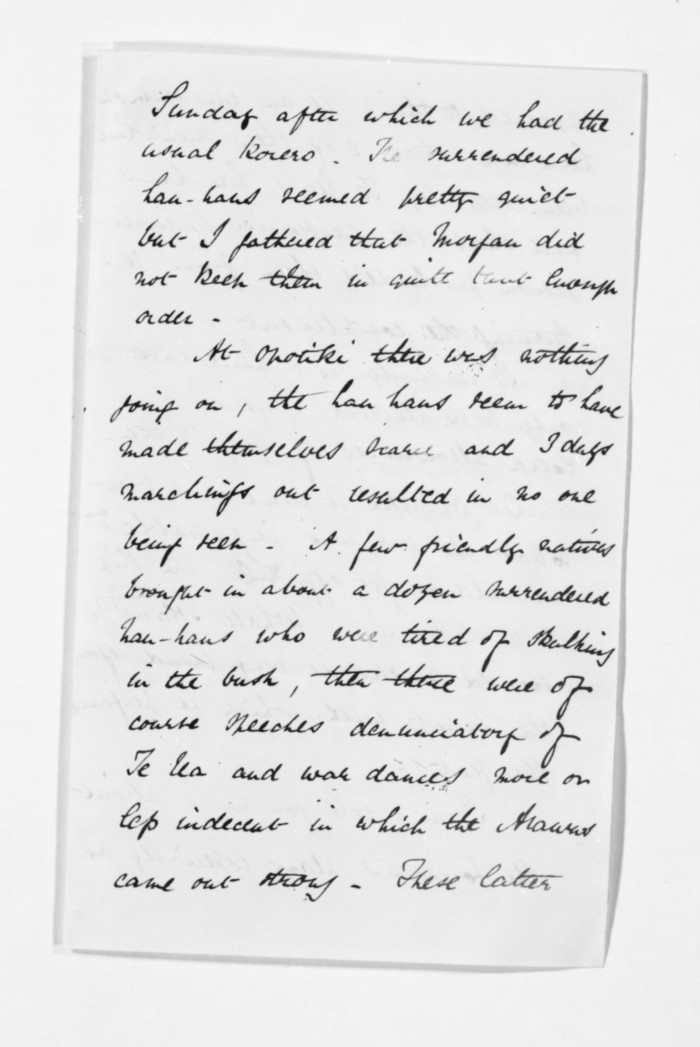 Sunday after which we had the
usual Korero. The surrendered
hau-haus seemed pretty quiet
but I gathered that Morgan did
not keep them in quite taut enough
order -
At Opotiki there was nothing
going on, the hau haus seem to have
made themselves scarce and 3 days
marchings out resulted in no one
being seen - A few friendly natives
brought in about a dozen surrendered
hau-haus who were tired of skulking
in the bush, then there were of
course speeches denunciatory of
Te Ua and war dances more or
less indecent in which the Arawas
came out strong - These latter